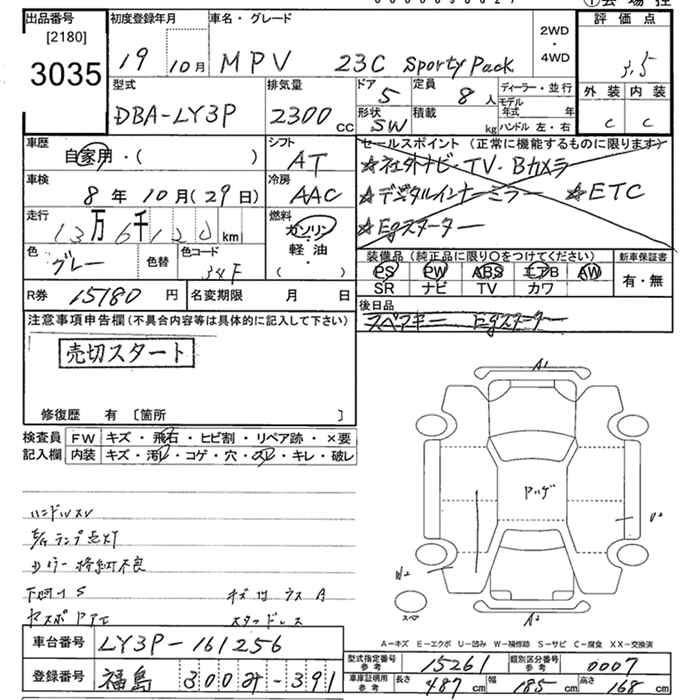 出品番号
[2180]
3035
初度登録年月
19 10月
車名・グレード
MPV 23C Sporty Pack
2WD
・
4WD
評価点
3.5
外装 内装
C C
型式
DBA-LY3P
排気量
2300 CC
ドア
5
形状
SW
定員
8人
積載
kg
ディーラー・並行
モデル年式 年
ハンドル 左・右
車歴
自家用・( )
シフト
AT
車検
8年10月(29日)
冷房
AAC
走行
13万6千120km
燃料
ガソリン
軽・油
( )
色
グレー
色替
色コード
34F
R券 15180円
名変期限 月 日
セールスポイント(正常に機能するものに限ります)
☆社外ナビ・TV・Bカメラ
☆デジタルインナーミラー ☆ETC
☆Egスターター
装備品(純正品に限り○をつけてください)
PS PW ABS エアB AW
SR ナビ TV カワ
新車保証書
有・無
後日品
スペアキー Egスターター
注意事項申告欄(不具合内容等は具体的に記入して下さい)
売切スタート
修復歴 有〔箇所 〕
検査員記入欄
FW キズ・飛石・ヒビ割・リペア跡・×要
内装 キズ・汚レ・コゲ・穴・スレ・キレ・破レ
ハンドルスレ
下回りS
キズ凹ウスA
スタッドレス
A1
W2
A2
スペア
A-キズ E-エクボ U-凹み W-補修跡 S-サビ C-腐食 XX-交換済
車台番号 LY3P-161256
登録番号 福島 300み-391
型式指定番号 参考 15261
類別区分番号 参考 0007
車庫証明用 参考 長さ 487cm 幅 185cm 高さ 168cm